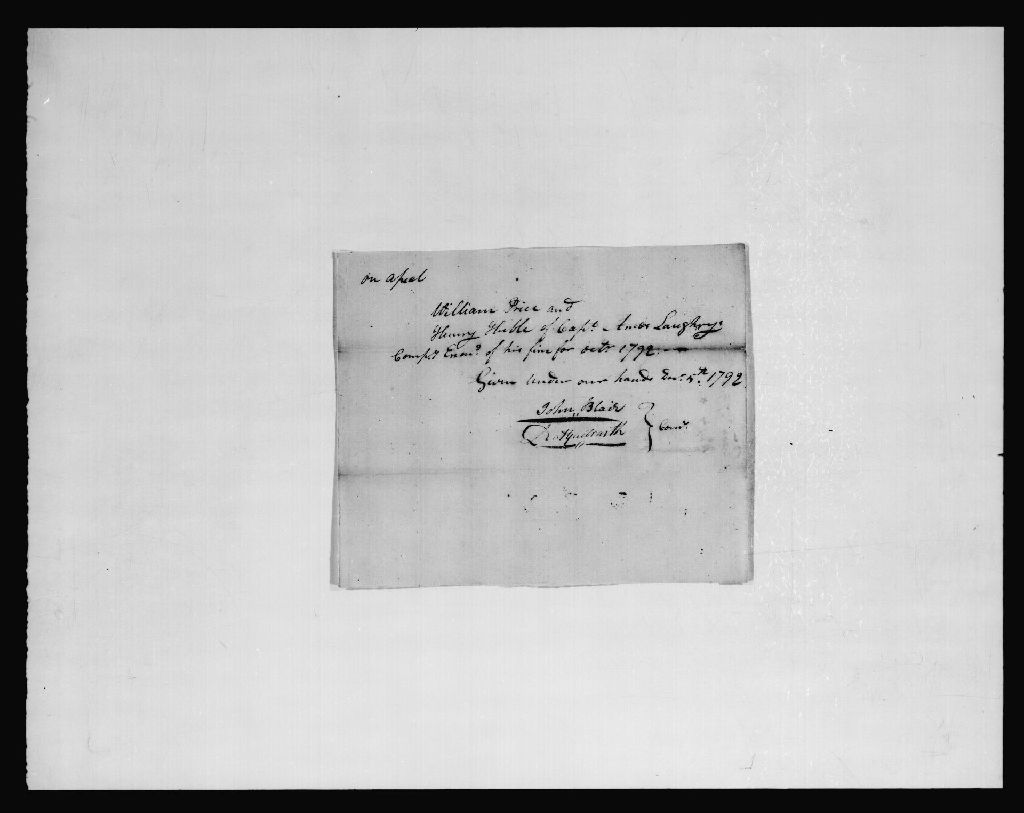 on apeal
William Price and
Henry Huble of Capt. Amos Laughrys
Compy Exond. of his fine for octr 1792
Given under our hands Decr. 5th. 1792
John Blair
Comrs.